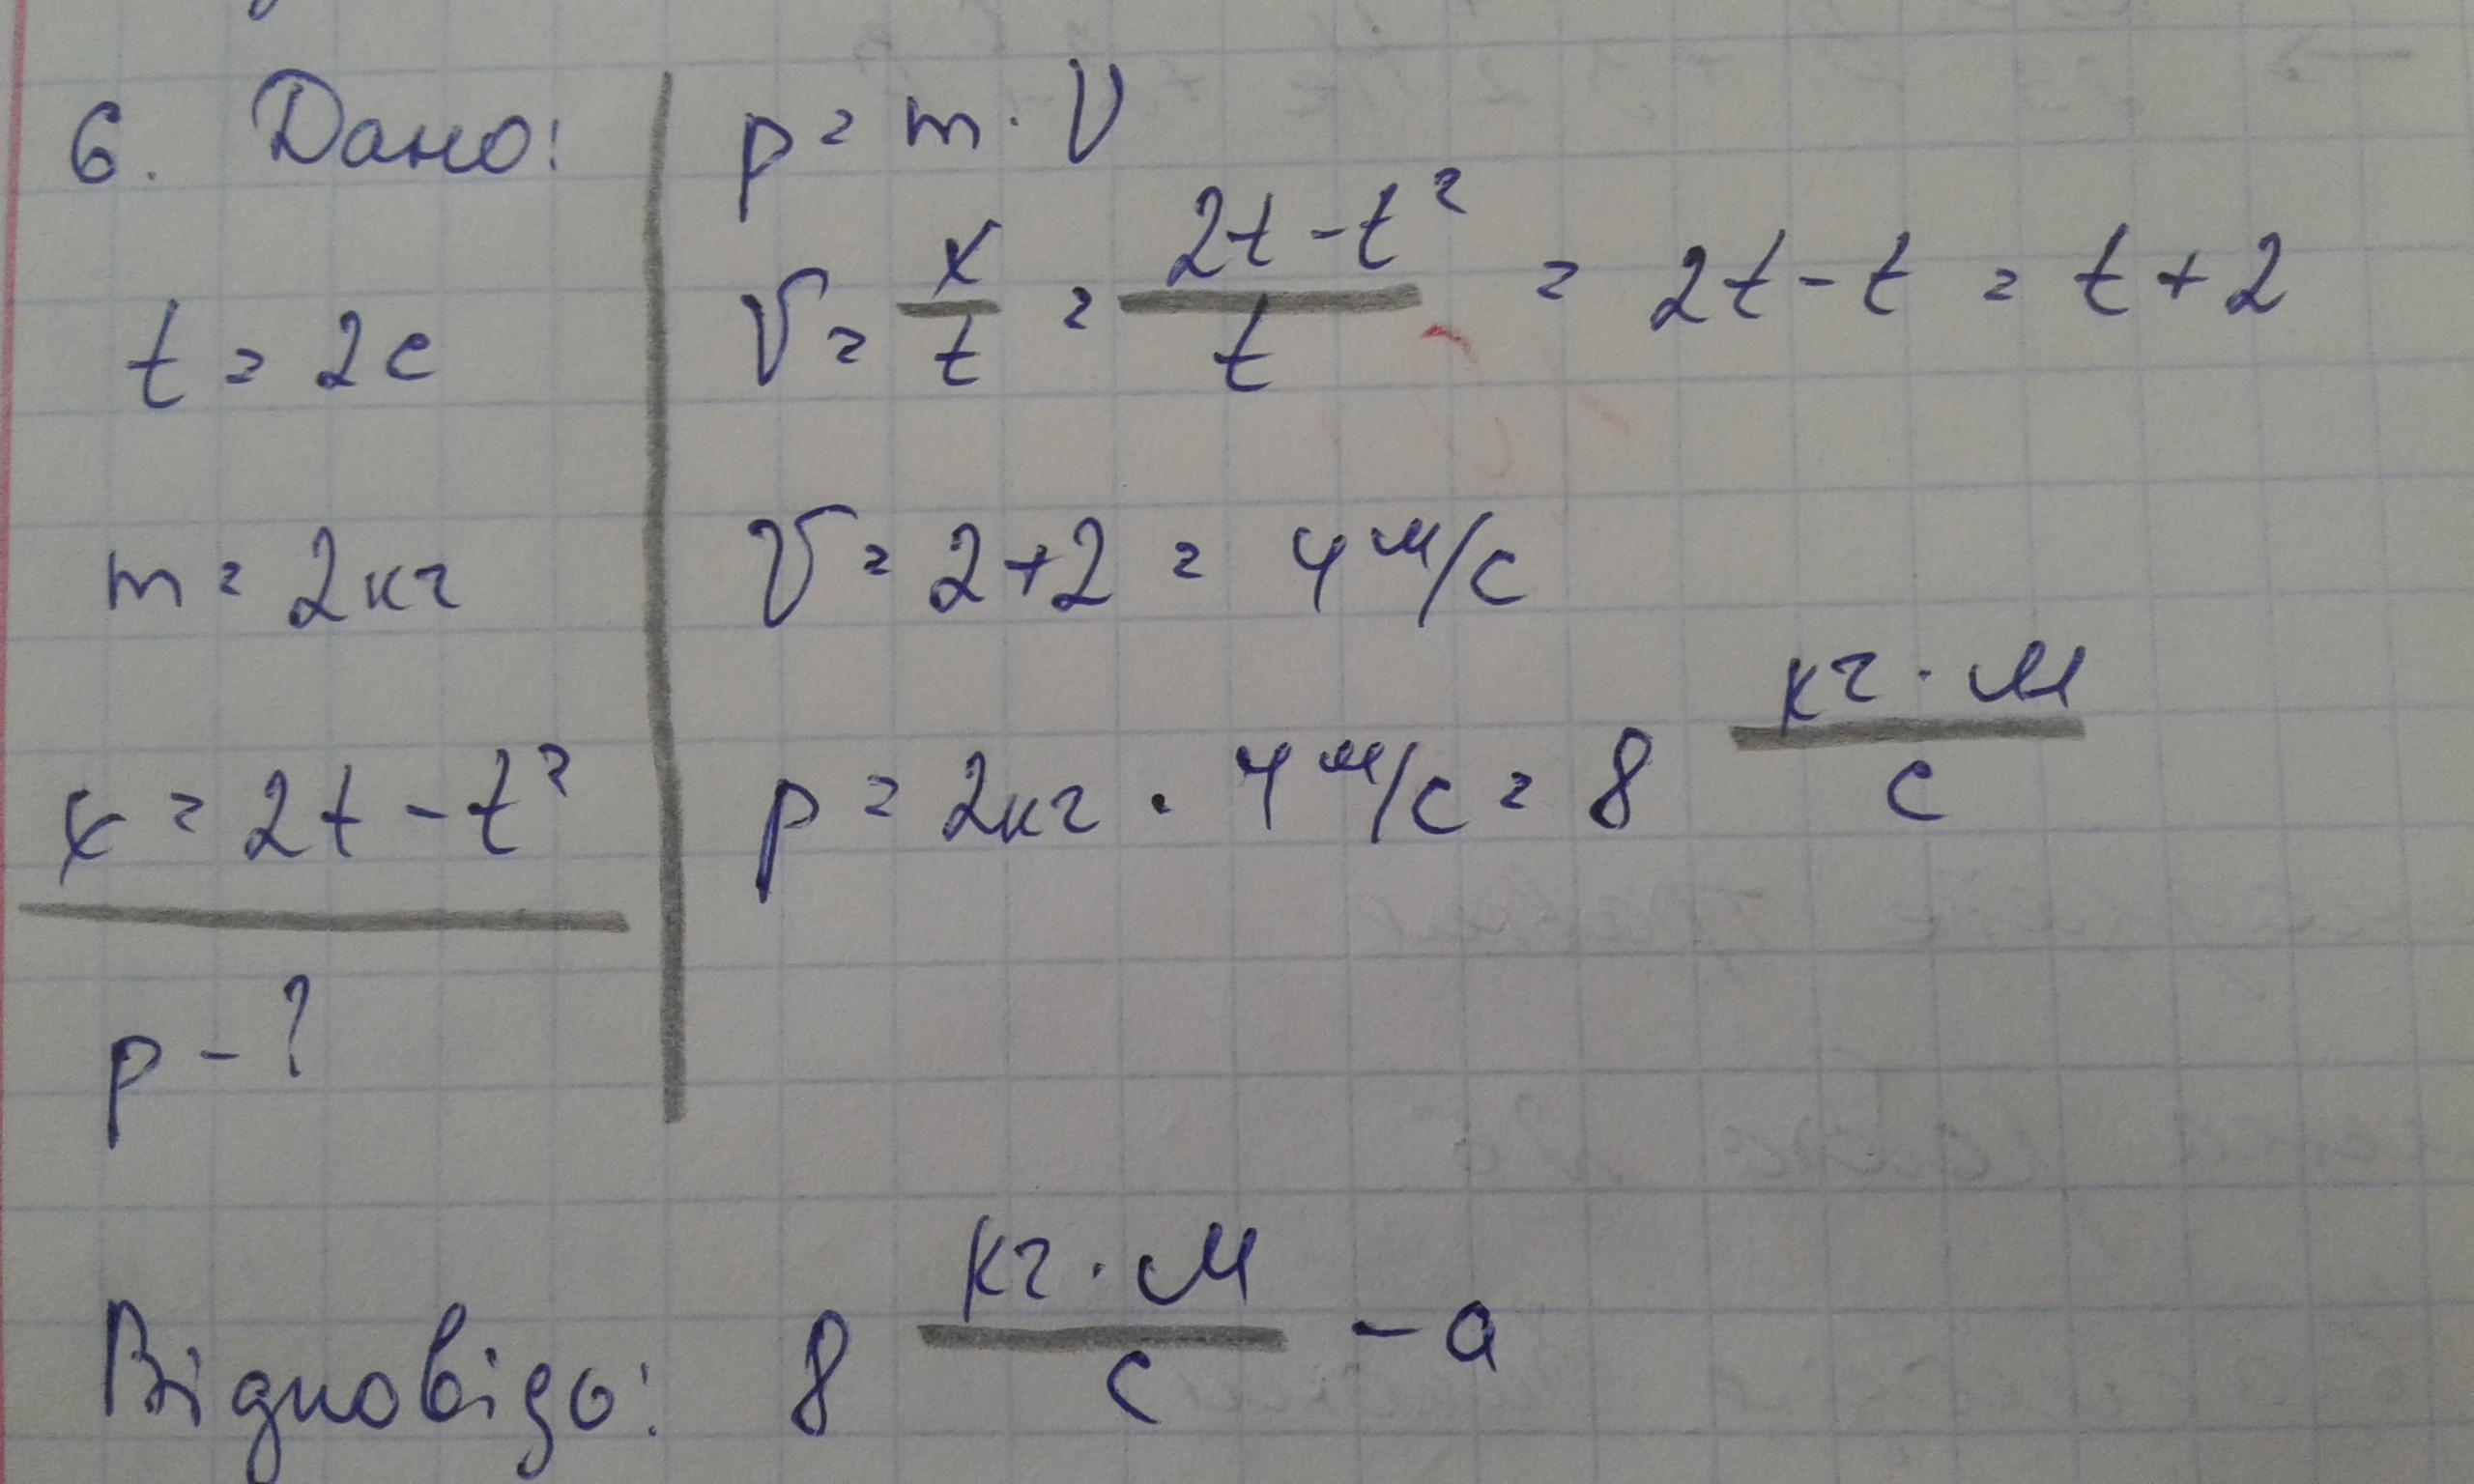 6. Дано:
t = 2с
m = 2кг
x = 2t - t²
p - ?
p = m · V
V = x/t = (2t - t²)/t = 2t - t = t + 2
V = 2+2 = 4 м/с
p = 2кг · 4 м/с = 8 кг · м/с
Відповідь: 8 кг · м/с - а